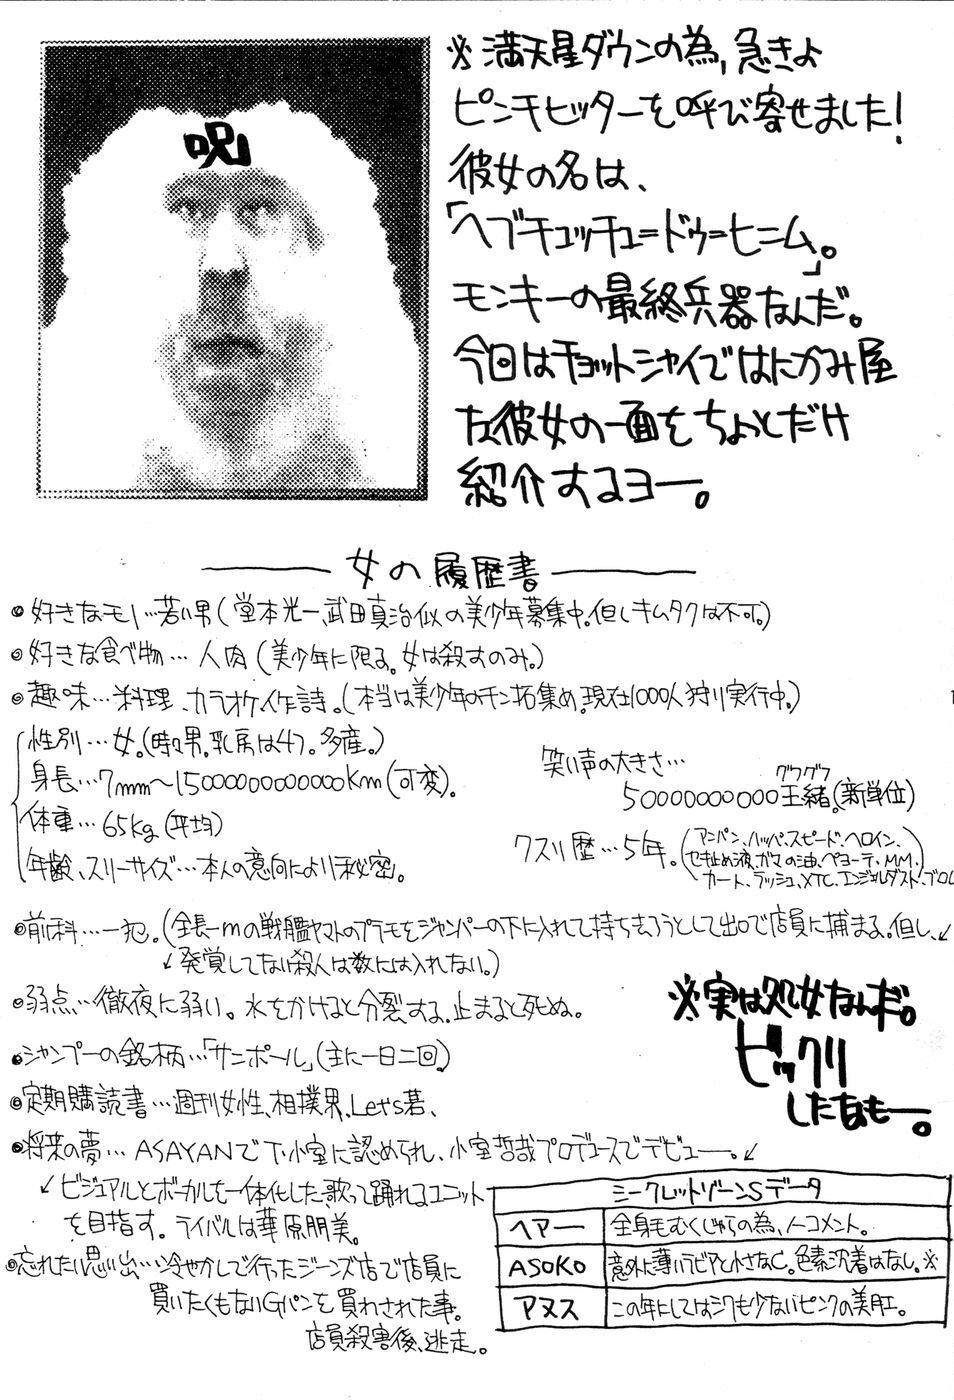 呪
※満天星ダウンの為、急きょ
ピンチヒッターを呼び寄せました!
彼女の名は、
「ヘブチュッチュ=ドゥ=ヒニム」。
モンキーの最終兵器なんだ。
今回はチョットシャイではにかみ屋
な彼女の一面をちょっとだけ
紹介するヨー。
女の履歴書
●好きなモノ…若い男(堂本光一、武田真治似の美少年募集中。但しキムタクは不可。)
●好きな食べ物…人肉(美少年に限る。女は殺すのみ。)
●趣味…料理、カラオケ、作詩。(本当は美少年のチン拓集め。現在1000人狩り実行中。)
性別…女。(時々男。乳房は47。多産。)
身長…7mm〜15000000000000Km(可変)。
体重…65kg(平均)
年齢、スリーサイズ…本人の意向により秘密。
笑い声の大きさ…
グウグウ
50000000000王緒。(新単位)
クスリ歴…5年。(アンパン、ハッパ、スピード、ヘロイン、
セキ止め液、ガマの油、ペヨーテ、MM、
カート、ラッシュ、XTC、エンジェルダスト、ブロ
●前科…一犯。(全長一mの戦艦ヤマトのプラモをジャンパーの下に入れて持ち去ろうとして出口で店員に捕まる。但し、↙
↙発覚してない殺人は数には入れない。)
●弱点…徹夜に弱い。水をかけると分裂する。止まると死ぬ。
●シャンプーの銘柄…「サンポール」(主に一日二回)
●定期購読書…週刊女性、相撲界、Let's若、
※実は処女なんだ。
ビックリ
したなもー。
●将来の夢…ASAYANで下小室に認められ、小室哲哉プロデュースでデビュー。↙
↙ビジュアルとボーカルを一体化した、歌って踊れるユニット
を目指す。ライバルは華原朋美。
●忘れたい思い出…冷やかしで行ったジーンズ店で店員に
買いたくもないGパンを買わされた事。
店員殺害後、逃走。
シークレットゾーンSデータ
ヘアー 全身毛むくじゃらの為、ノーコメント。
ASOKO 意外に薄いラビアと小さなC。色素沈着はなし。※
アヌス この年にしてはシワも少ないピンクの美肛。